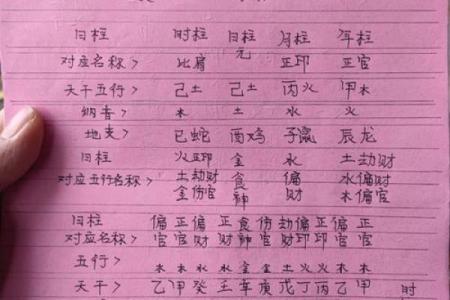 日柱 时柱 日柱 月柱 年柱
元
对应名称> 比肩 正印 正官
天干五行> 己土 己土 丙火 甲木
纳音> 木 土 水 火
地支> 巳蛇 酉鸡 子鼠 辰龙
日柱 火正印 金 水 土劫财
对应五行名称> 土劫财 食 偏 水偏财
金伤官 神 财 木偏官
日柱 偏 正 偏 正 食 伤 劫 偏 正 偏 正
对应名称> 官 官 财 财 神 官 财 印 印 官 官
五行> 木 木 水 水 金 金 土 火 火 木 木
天干> 乙 甲 癸 壬 辛 庚 戊 丁 丙 乙 甲 时